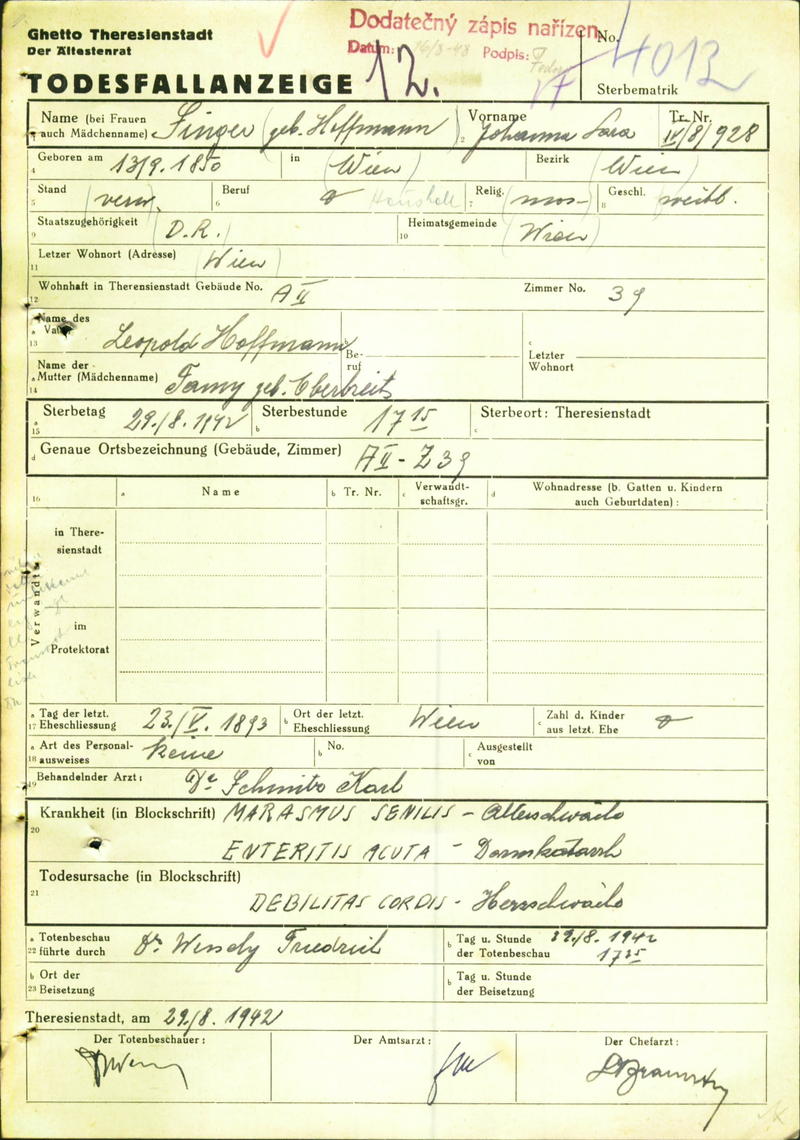 Ghetto Theresienstadt
Der Ältestenrat
Dodatečný zápis nařízen
Datum: 16/3-48 Podpis:
12.
No. 4013
TODESFALLANZEIGE
Sterbematrik
Name (bei Frauen auch Mädchenname) Singer (geb. Hoffmann)
2 Vorname Johanna Sara
Tr. Nr. IV/8/928
4 Geboren am 13/9. 1850 in (Wien) Bezirk (Wien)
5 Stand (verw.) 6 Beruf Haushalt 7 Relig. (mos-) 8 Geschl. weibl.
9 Staatszugehörigkeit (D.R.) 10 Heimatsgemeinde (Wien)
11 Letzer Wohnort (Adresse) (Wien)
12 Wohnhaft in Therensienstadt Gebäude No. A II Zimmer No. 39
13 a Name des Vaters Leopold Hoffmann
Beruf
c Letzter Wohnort
14 a Name der Mutter (Mädchenname) Fanny geb. Oberbreits
15 a Sterbetag 29./8. 1942 b Sterbestunde 17 15 c Sterbeort: Theresienstadt
d Genaue Ortsbezeichnung (Gebäude, Zimmer) A II - Z 39
16 a Name b Tr. Nr. c Verwandtschaftsgr. d Wohnadresse (b. Gatten u. Kindern auch Geburtdaten):
Verwandte
in Theresienstadt
im Protektorat
17 a Tag der letzt. Eheschliessung 23./V. 1893 b Ort der letzt. Eheschliessung Wien c Zahl d. Kinder aus letzt. Ehe
18 a Art des Personalausweises keine b No. c Ausgestellt von
19 Behandelnder Arzt: Dr. Schmitz Karl
20 Krankheit (in Blockschrift) MARASMUS SENILIS - Altersschwäche
ENTERITIS ACUTA - Darmkatarrh
21 Todesursache (in Blockschrift)
DEBILITAS CORDIS - Herzschwäche
22 a Totenbeschau führte durch Dr. Wensely Friedrich b Tag u. Stunde der Totenbeschau 29./8. 1942 17 25
23 b Ort der Beisetzung b Tag u. Stunde der Beisetzung
Theresienstadt, am 29./8. 1942
Der Totenbeschauer: Der Amtsarzt: Der Chefarzt: